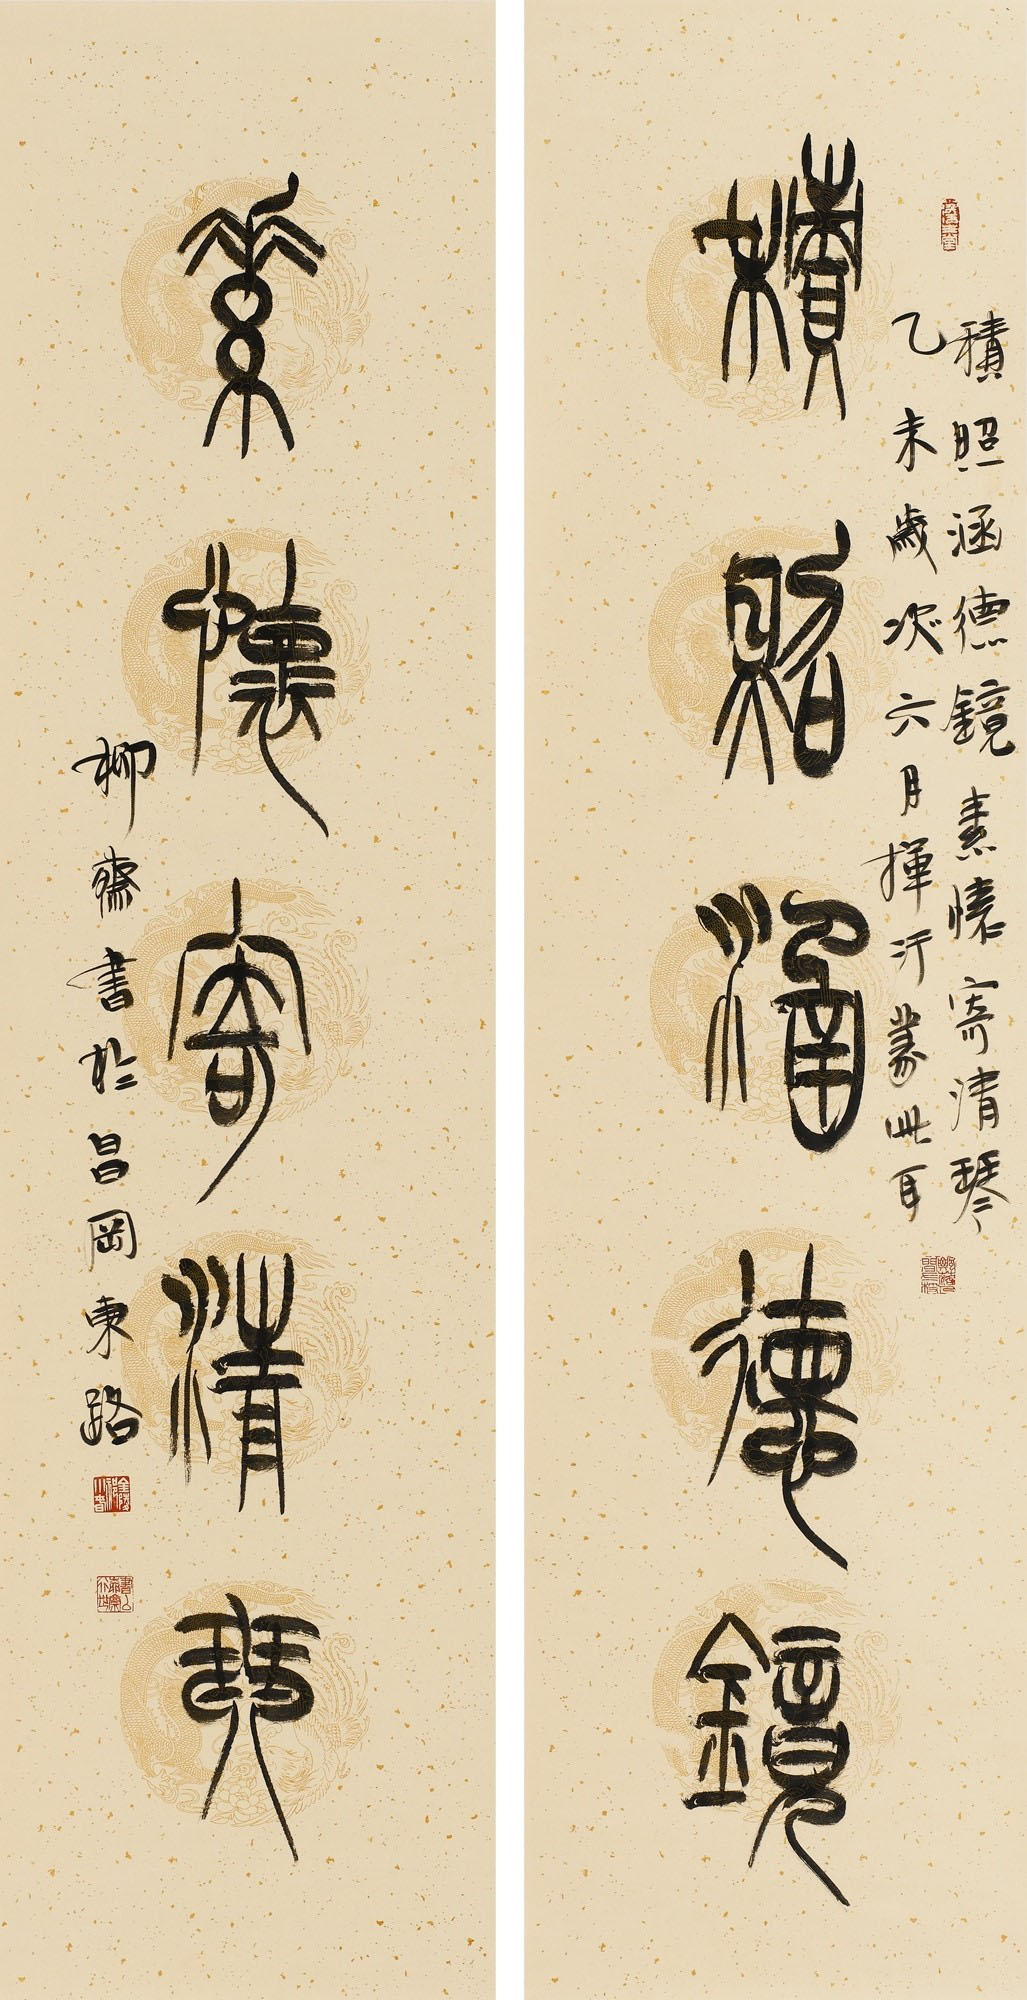 積照涵德鏡
積照涵德鏡素懷寄清琴
乙未歲次六月揮汗篆此耳
素懷寄清琴
柳齋書於昌岡東路